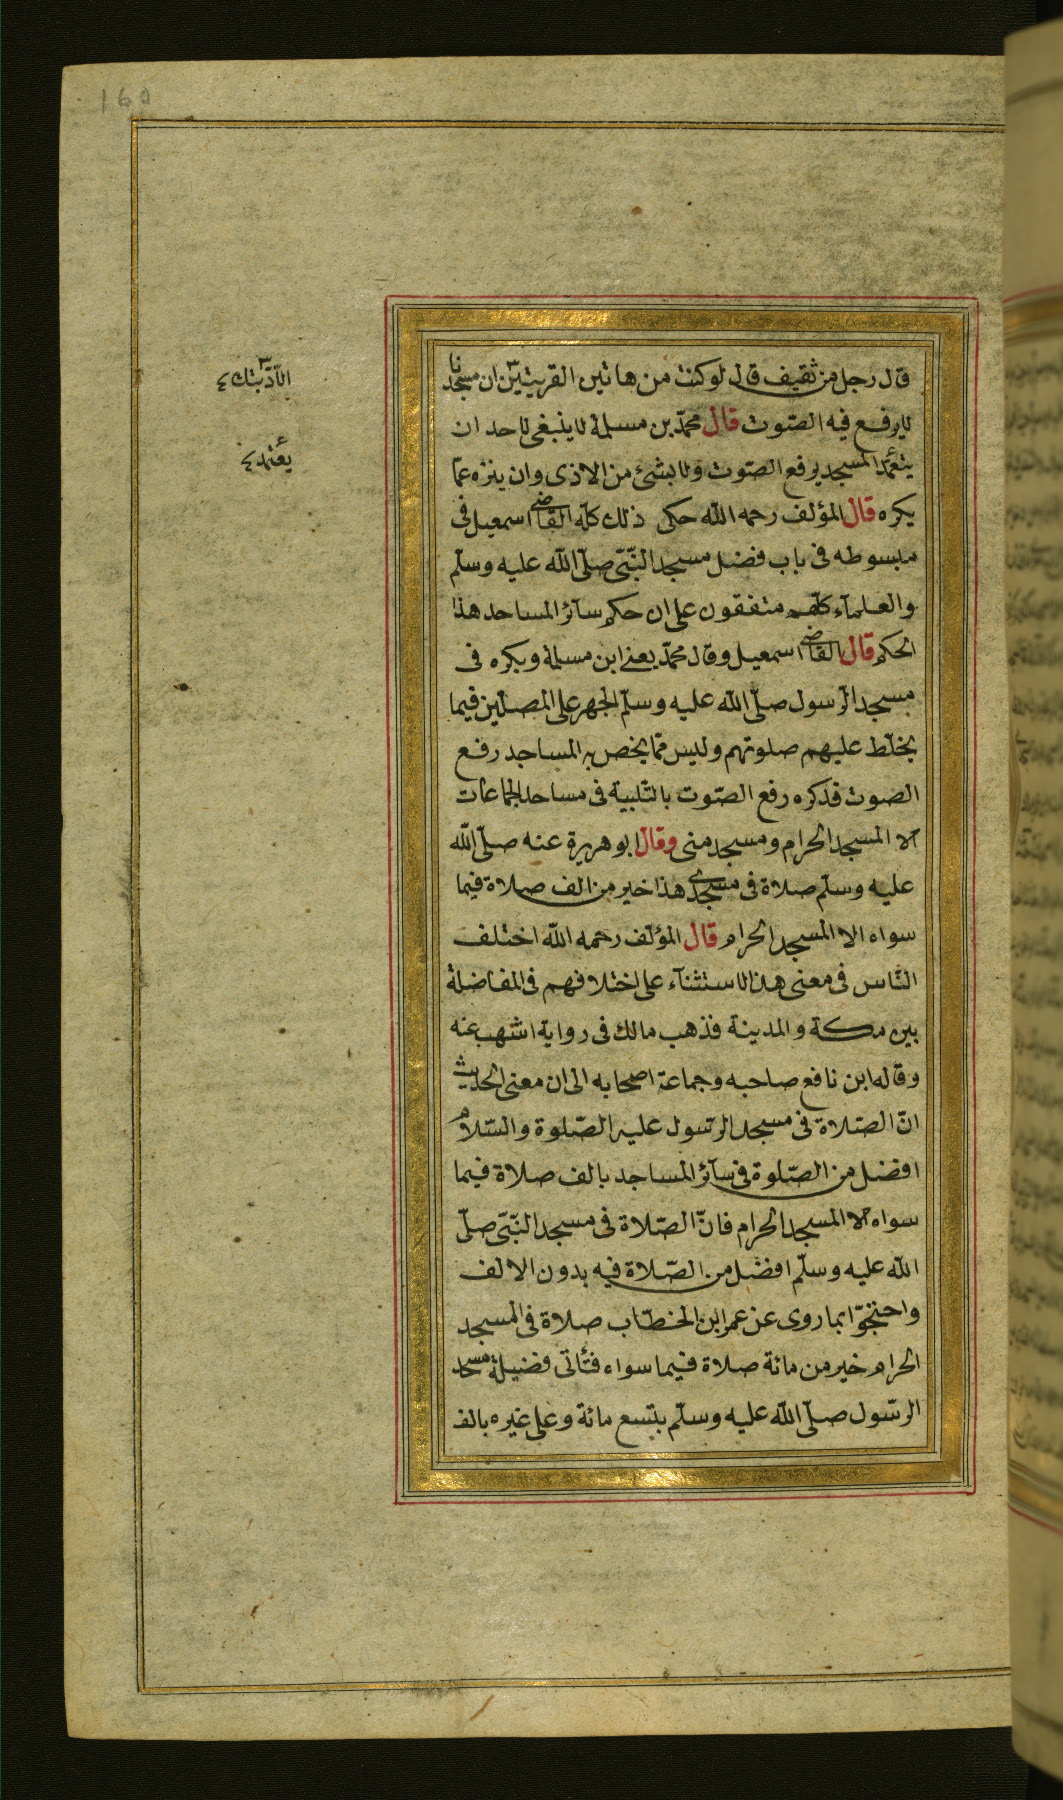 قال رجل من ثقيف قال لو كنت من هاتين القريتين ان مسجدنا
لا يرفع فيه الصّوت قال محمّد بن مسلمة لا ينبغى لاحد ان
يتعمّد المسجد برفع الصّوت ولا بشئ من الاذى وان ينزه عمّا
يكره قال المؤلف رحمه اللّه حكى ذلك كلّه القاضى اسمعيل فى
مبسوطه فى باب فضل مسجد النّبىّ صلّى اللّه عليه وسلّم
والعلمآء كلّهم متفقون على ان حكم سآئر المساجد هذا
الحكم قال القاضى اسمعيل وقال محمّد يعنى ابن مسلمة ويكره فى
مسجد الرّسول صلّى اللّه عليه وسلّم الجهر على المصلّين فيما
يخلّط عليهم صلوتهم وليس ممّا يخص به المساجد رفع
الصوت قد كره رفع الصّوت بالتّلبية فى مساجد الجماعات
الا المسجد الحرام ومسجد منى وقال ابو هريرة عنه صلّى اللّه
عليه وسلّم صلاة فى مسجدى هذا خير من الف صلاة فيما
سواه الا المسجد الحرام قال المؤلّف رحمه اللّه اختلف
النّاس فى معنى هذا الاستثنآء على اختلافهم فى المفاضلة
بين مكة والمدينة فذهب مالك فى رواية اشهب عنه
وقاله ابن نافع صاحبه وجماعة اصحابه الى ان معنى الحديث
انّ الصّلاة فى مسجد الرّسول عليه الصّلوة والسّلام
افضل من الصّلوة فى سآئر المساجد بالف صلاة فيما
سواه الا المسجد الحرام فانّ الصّلاة فى مسجد النّبىّ صلّى
اللّه عليه وسلّم افضل من الصّلاة فيه بدون الالف
واحتجّوا بما روى عن عمر ابن الخطّاب صلاة فى المسجد
الحرام خير من مائة صلاة فيما سواه فتأتى فضيلة مسجد
الرّسول صلّى اللّه عليه وسلّم بتسع مائة وعلى غيره بالف
لأدّبتك
يعتمد
160